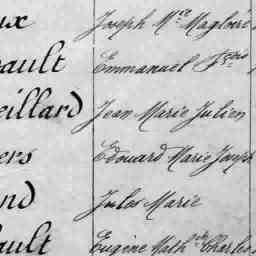 ux Joseph Mie Magloire
ault Emmanuel Fçois
eillard Jean Marie Julien
ers Edouard Marie Joseph
nd Jules Marie
ault Eugène Math. Charles